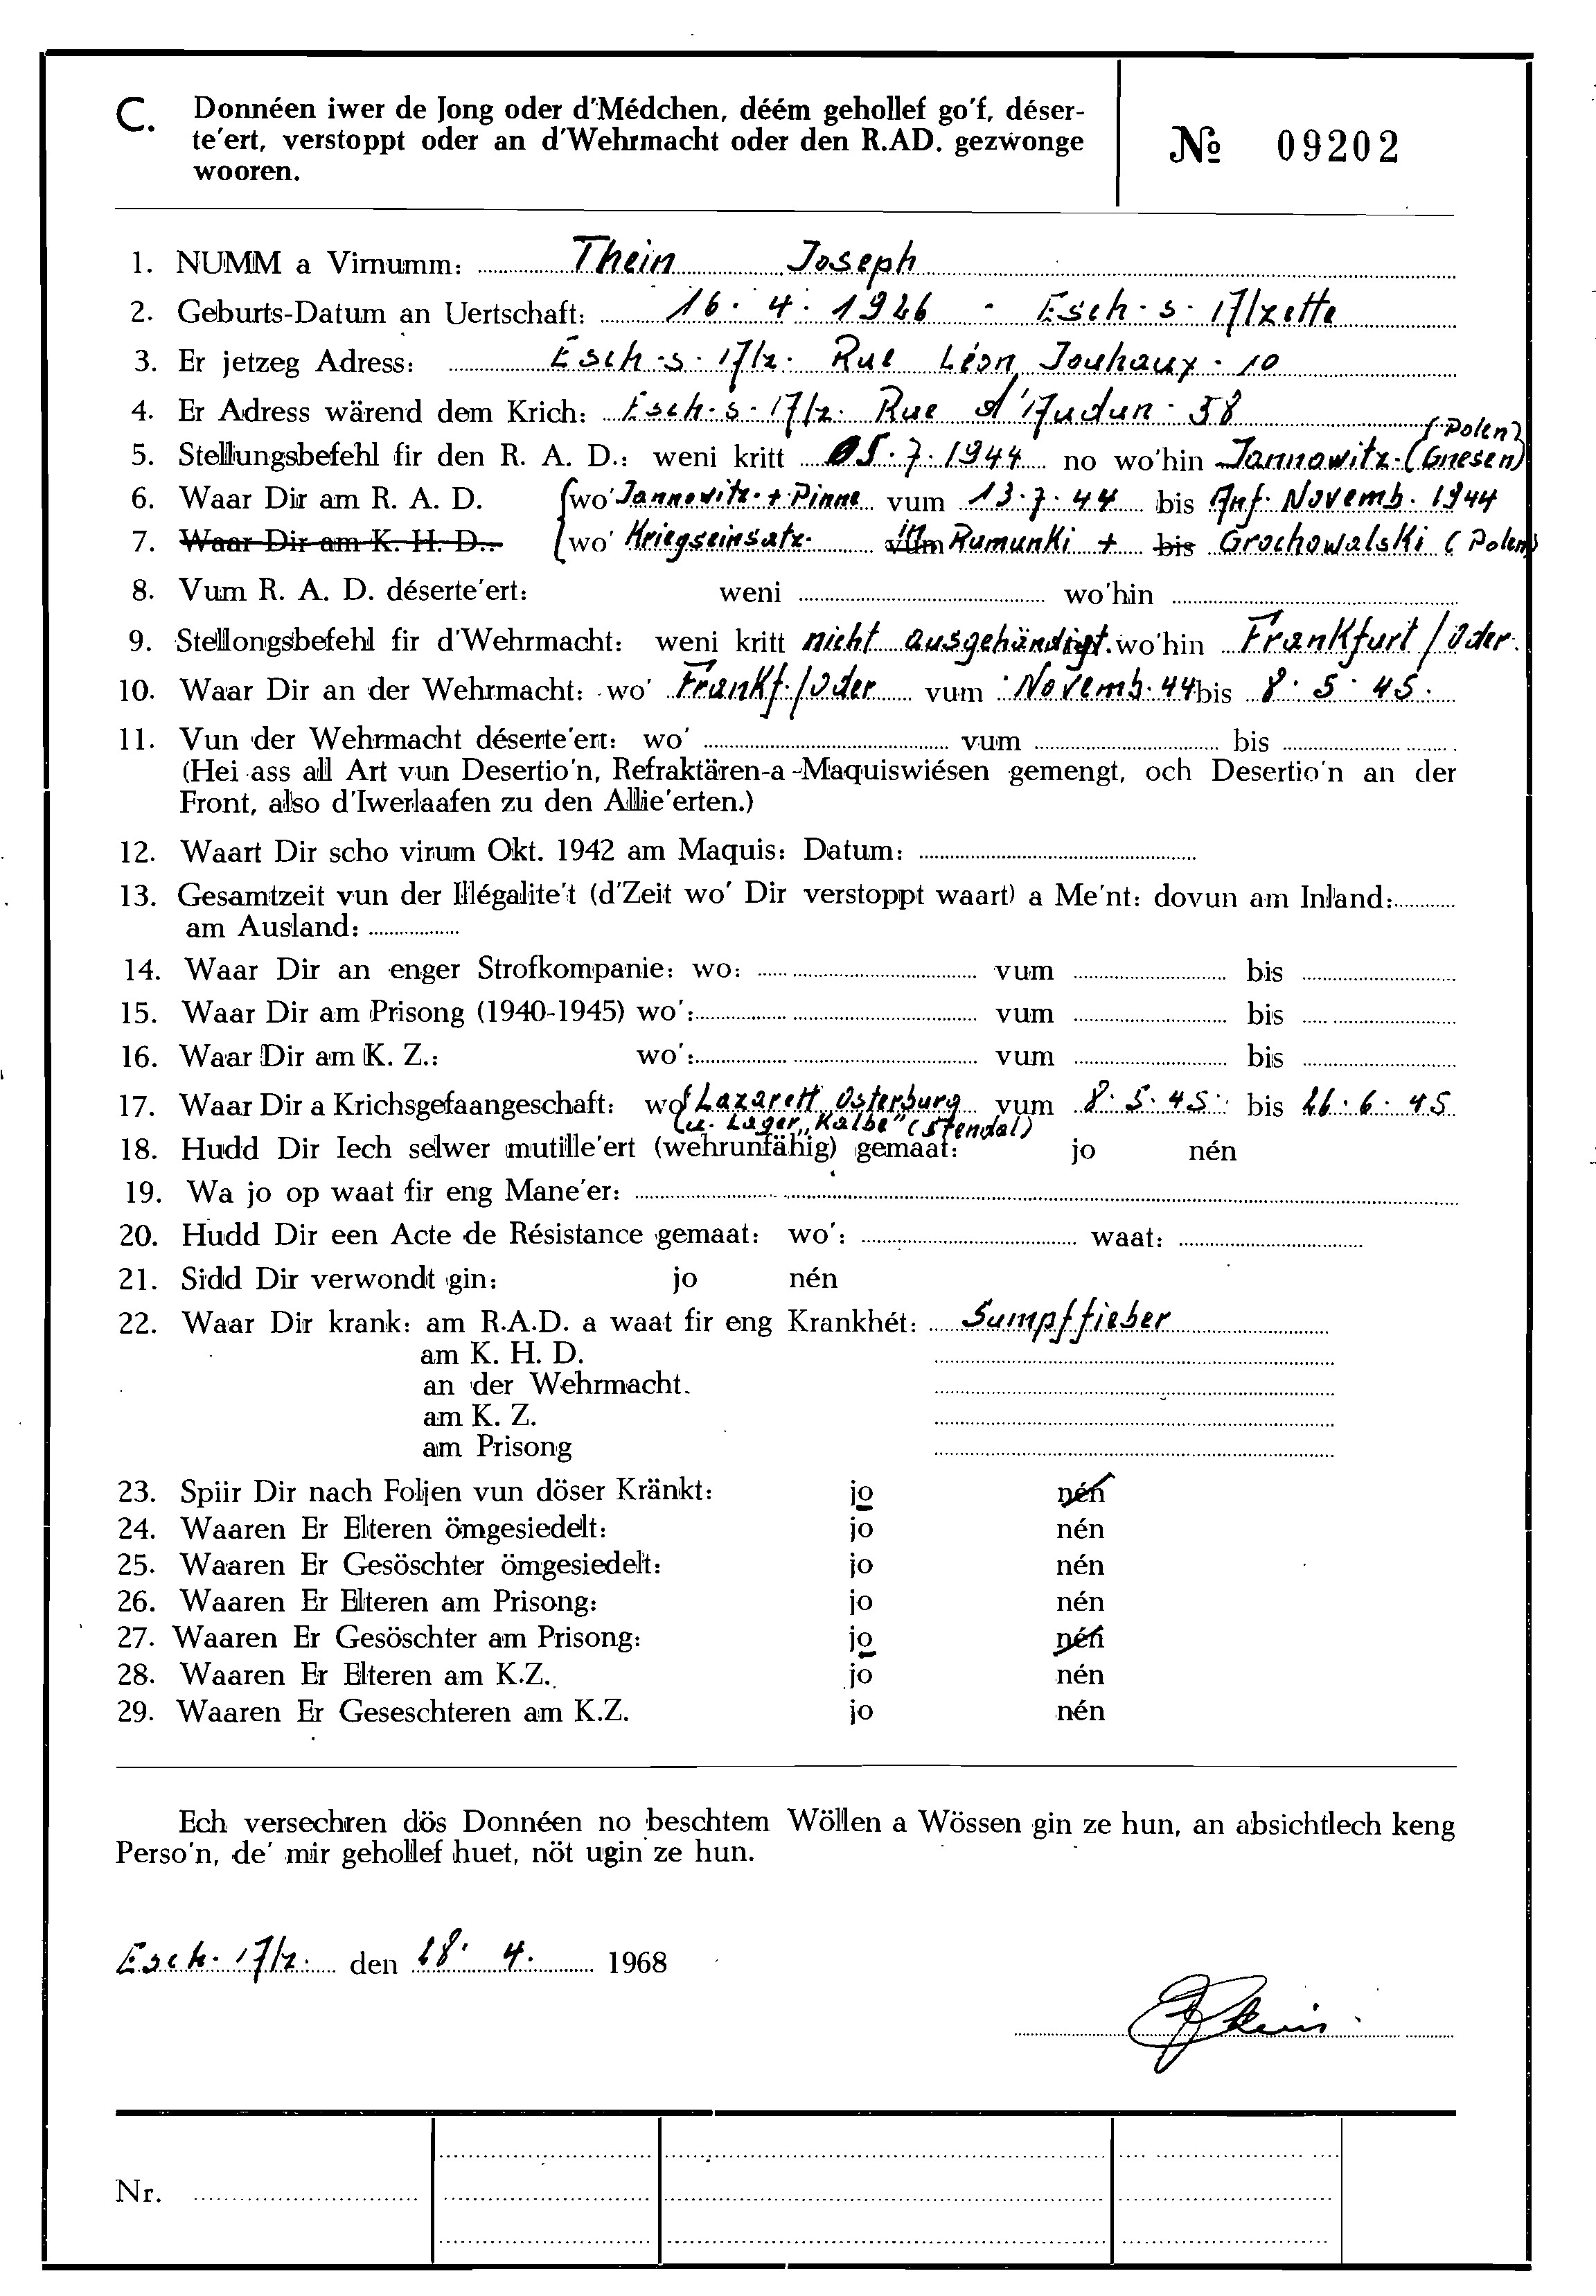 C. Donnéen iwer de Jong oder d'Médchen, déém gehollef go'f, déser-
te'ert, verstoppt oder an d'Wehrmacht oder den R.AD. gezwonge
wooren.
№ 09202
1. NUMM a Virnumm: Thein Joseph
2. Geburts-Datum an Uertschaft: 16. 4. 1926 - Esch-s-Alzette
3. Er jetzeg Adress: Esch-s-Alz. Rue Léon Jouhaux - 10
4. Er Adress wärend dem Krich: Esch-s-Alz. Rue d'Audun - 58
(Polen)
5. Stellungsbefehl fir den R. A. D.: weni kritt 05.7.1944 no wo'hin Jannowitz-(Gnesen)
6. Waar Dir am R. A. D. wo' Jannowitz + Pinne vum 13.7.44 bis Anf. Novemb. 1944
7. Waar Dir am K. H. D.: wo' Kriegseinsatz. vum in Rumunki + bis Grochowalski (Polen)
8. Vum R. A. D. déserte'ert: weni wo'hin
9. Stellongsbefehl fir d'Wehrmacht: weni kritt nicht ausgehändigt. wo'hin Frankfurt/Oder.
10. Waar Dir an der Wehrmacht: wo' Frankf./Oder vum Novemb. 44 bis 8. 5. 45.
11. Vun der Wehrmacht déserte'ert: wo' vum bis
(Hei ass all Art vun Desertio'n, Refraktären-a-Maquiswiésen gemengt, och Desertio'n an der
Front, also d'Iwerlaafen zu den Allie'erten.)
12. Waart Dir scho virum Okt. 1942 am Maquis: Datum:
13. Gesamtzeit vun der Illégalite't (d'Zeit wo' Dir verstoppt waart) a Me'nt: dovun am Inland:
am Ausland:
14. Waar Dir an enger Strofkompanie: wo: vum bis
15. Waar Dir am Prisong (1940-1945) wo': vum bis
16. Waar Dir am K. Z.: wo': vum bis
17. Waar Dir a Krichsgefaangeschaft: wo' Lazarett Osterburg vum 8.5.45. bis 26.6.45
(u. Lager "Kalbe" (Stendal)
18. Hudd Dir Iech selwer mutille'ert (wehrunfähig) gemaat: jo nén
19. Wa jo op waat fir eng Mane'er:
20. Hudd Dir een Acte de Résistance gemaat: wo': waat:
21. Sidd Dir verwondt gin: jo nén
22. Waar Dir krank: am R.A.D. a waat fir eng Krankhét: Sumpffieber
am K. H. D.
an der Wehrmacht.
am K. Z.
am Prisong
23. Spiir Dir nach Foljen vun döser Kränkt: jo nén
24. Waaren Er Elteren ömgesiedelt: jo nén
25. Waaren Er Gesöschter ömgesiedelt: jo nén
26. Waaren Er Elteren am Prisong: jo nén
27. Waaren Er Gesöschter am Prisong: jo nén
28. Waaren Er Elteren am K.Z. jo nén
29. Waaren Er Geseschteren am K.Z. jo nén
Ech versechren dös Donnéen no beschtem Wöllen a Wössen gin ze hun, an absichtlech keng
Perso'n, de' mir gehollef huet, nöt ugin ze hun.
Esch-Alz. den 28. 4. 1968
Thein
Nr.